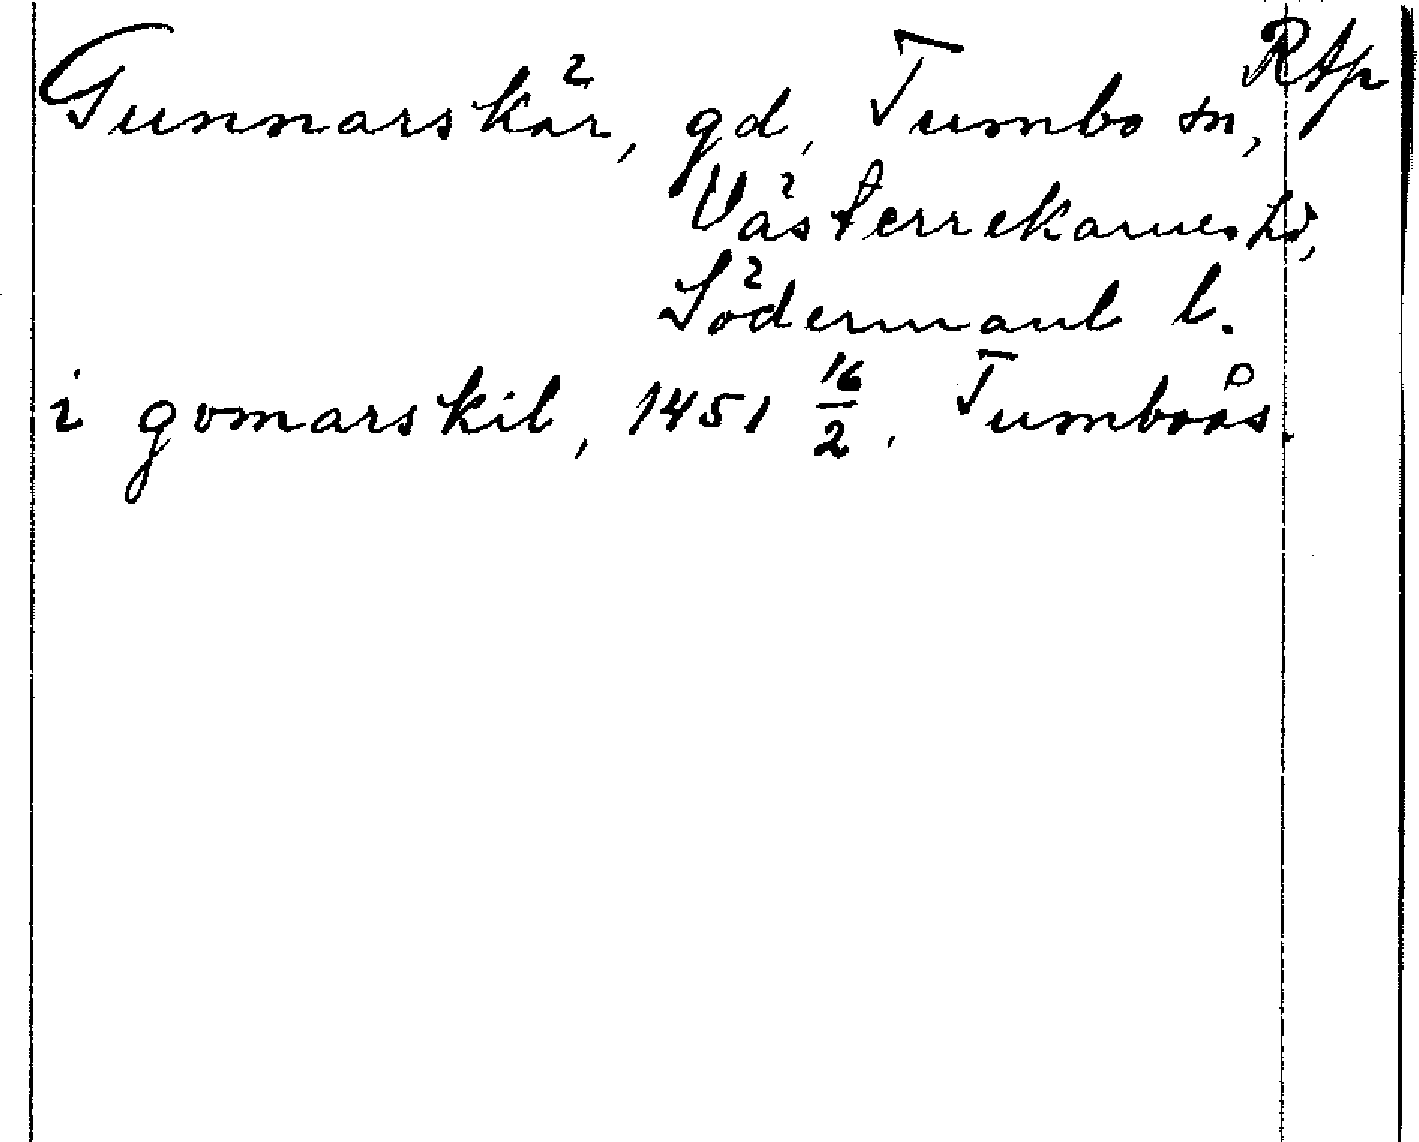 Rtp
Gunnarskär, gd, Tumbo sn,
Västerrekarnes hd,
Södermanl l.
i gomarskil, 1451 16/2, Tumboås.